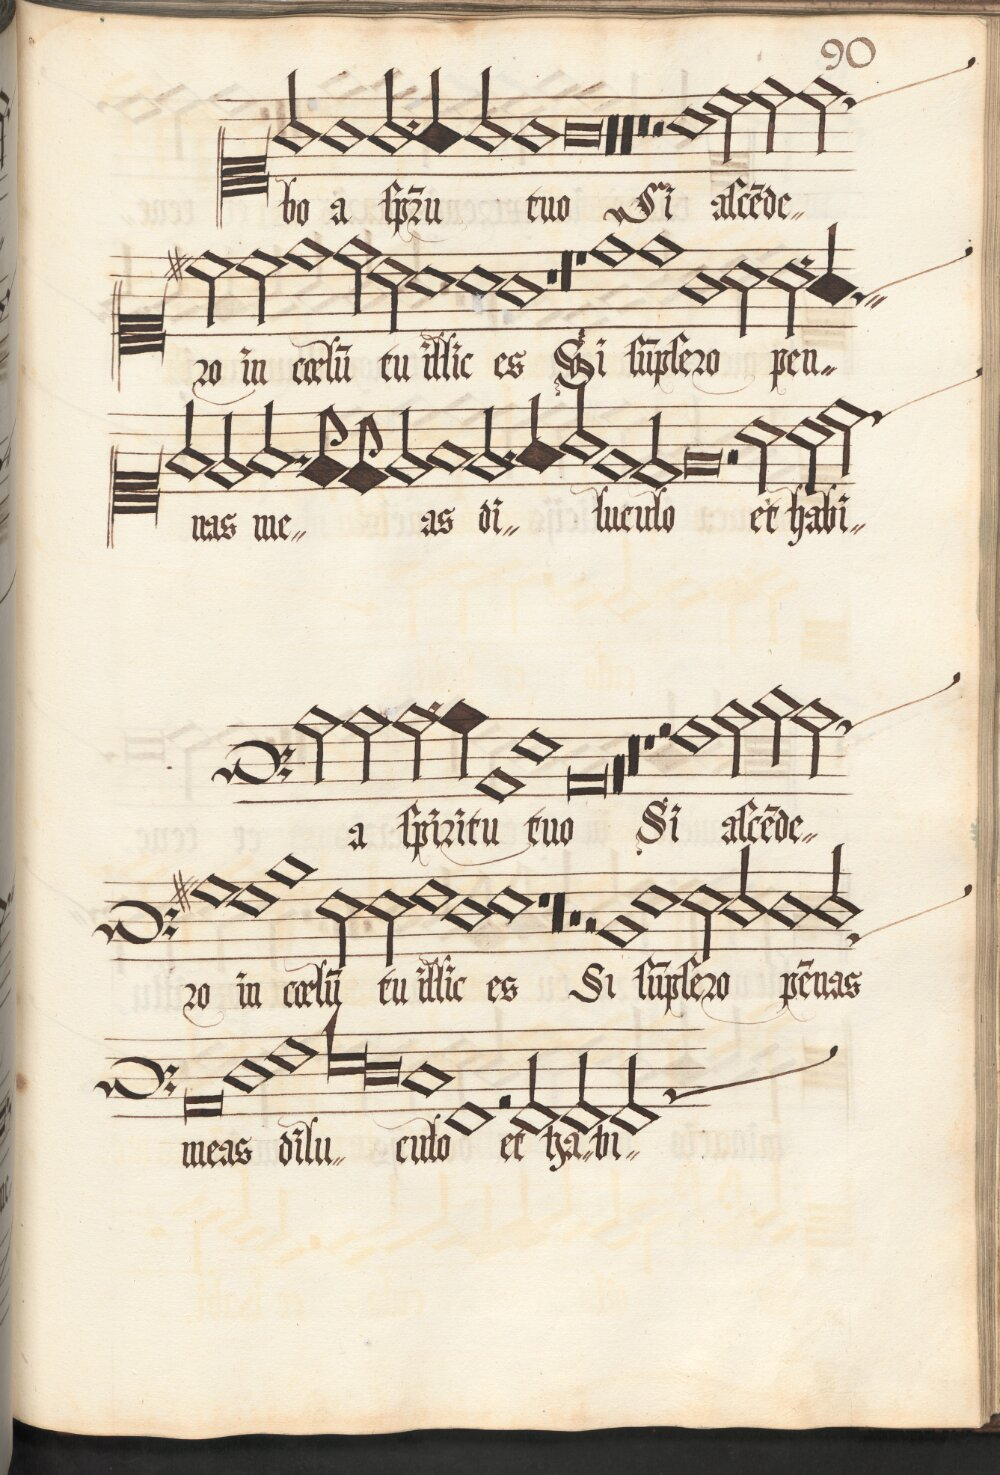 90
bo a sp̄zu tuo Si ascēde„
ro in cœlū tu illic es Si sūpsero pen„
nas me„ as di„ luculo et habi„
a spiritu tuo Si ascēde„
ro in cœlū tu illic es Si sūpsero pēnas
meas dilu„ culo et ha„bi„